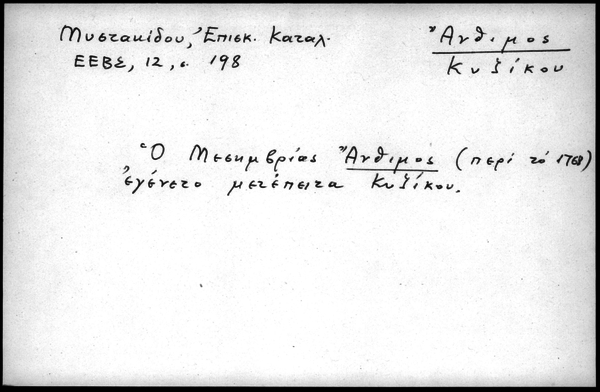 Μυστακίδου, Ἐπισκ. Καταλ.
ΕΕΒΣ, 12, σ. 198
Ἄνθιμος
Κυζίκου
Ὁ Μεσημβρίας Ἄνθιμος (περί τό 1768)
ἐγένετο μετέπειτα Κυζίκου.